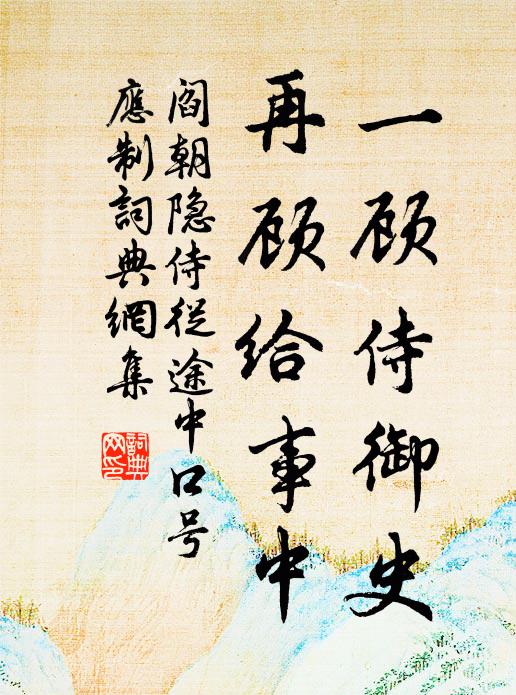 一顾侍御史
再顾给事中
阎朝隐侍從途中口号
應制詞典網集
詞典網印